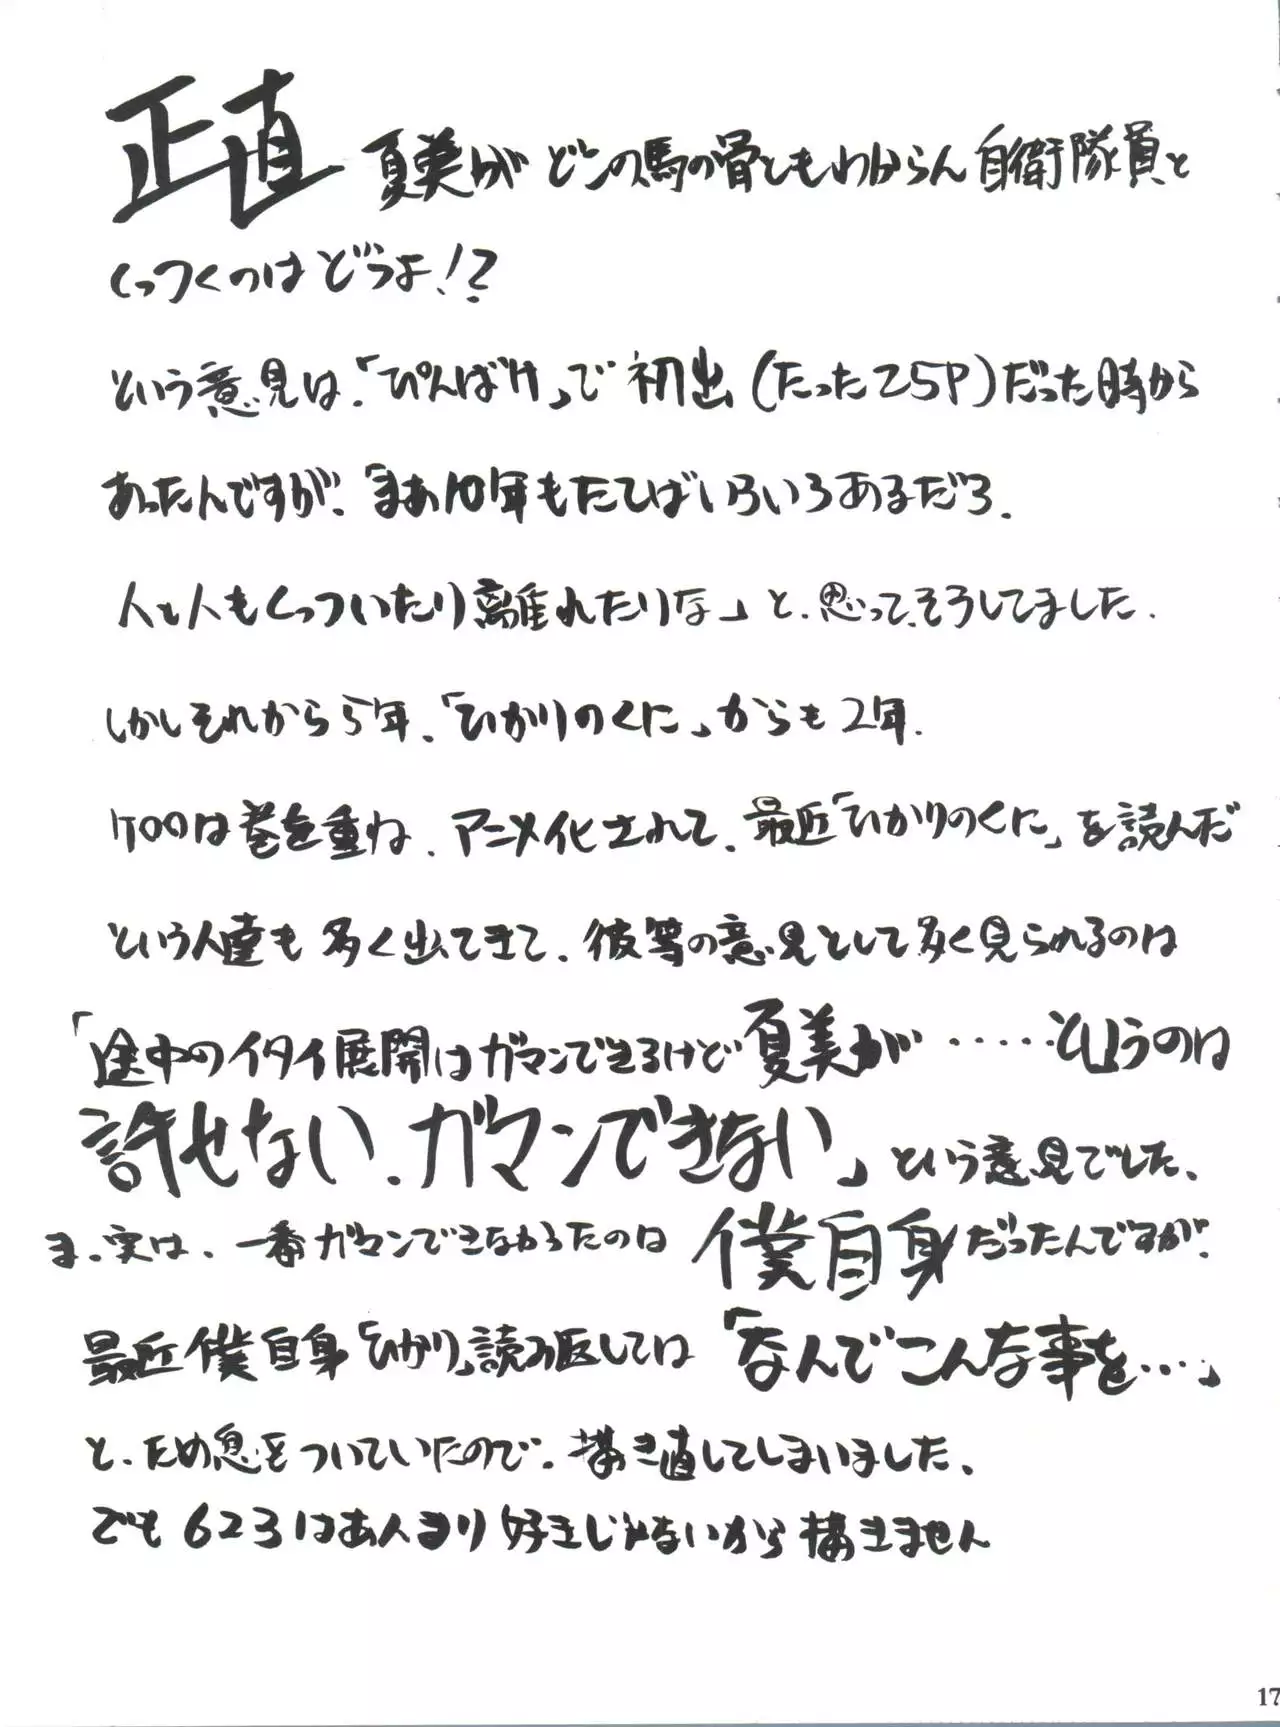 正直 夏美が どこの馬の骨ともわからん 自衛隊員と
くっつくのはどうよ!?
という意見は、「ぴんばけ」で 初出 (たった25P)だった時から
あったんですが、「まあ10年もたてばいろいろあるだろ.
人と人もくっついたり離れたりな」と、思って、そうしてました.
しかしそれから5年、「ひかりのくに」からも2年.
ケロロは巻を重ね、アニメ化されて、最近「ひかりのくに」を読んだ
という人達も 多く出てきて、彼等の意見として多く見られるのは
「途中のイタイ展開はガマンできるけど 夏美が ……というのは
許せない、ガマンできない」という意見でした、
ま、実は、一番ガマンできなかったのは 僕自身だったんですが、
最近 僕自身「ひかり」読み返しては「なんでこんな事を…」
と、ため息をついていたので、描き直してしまいました、
でも 623はあんまり好きじゃないから 描きません
17